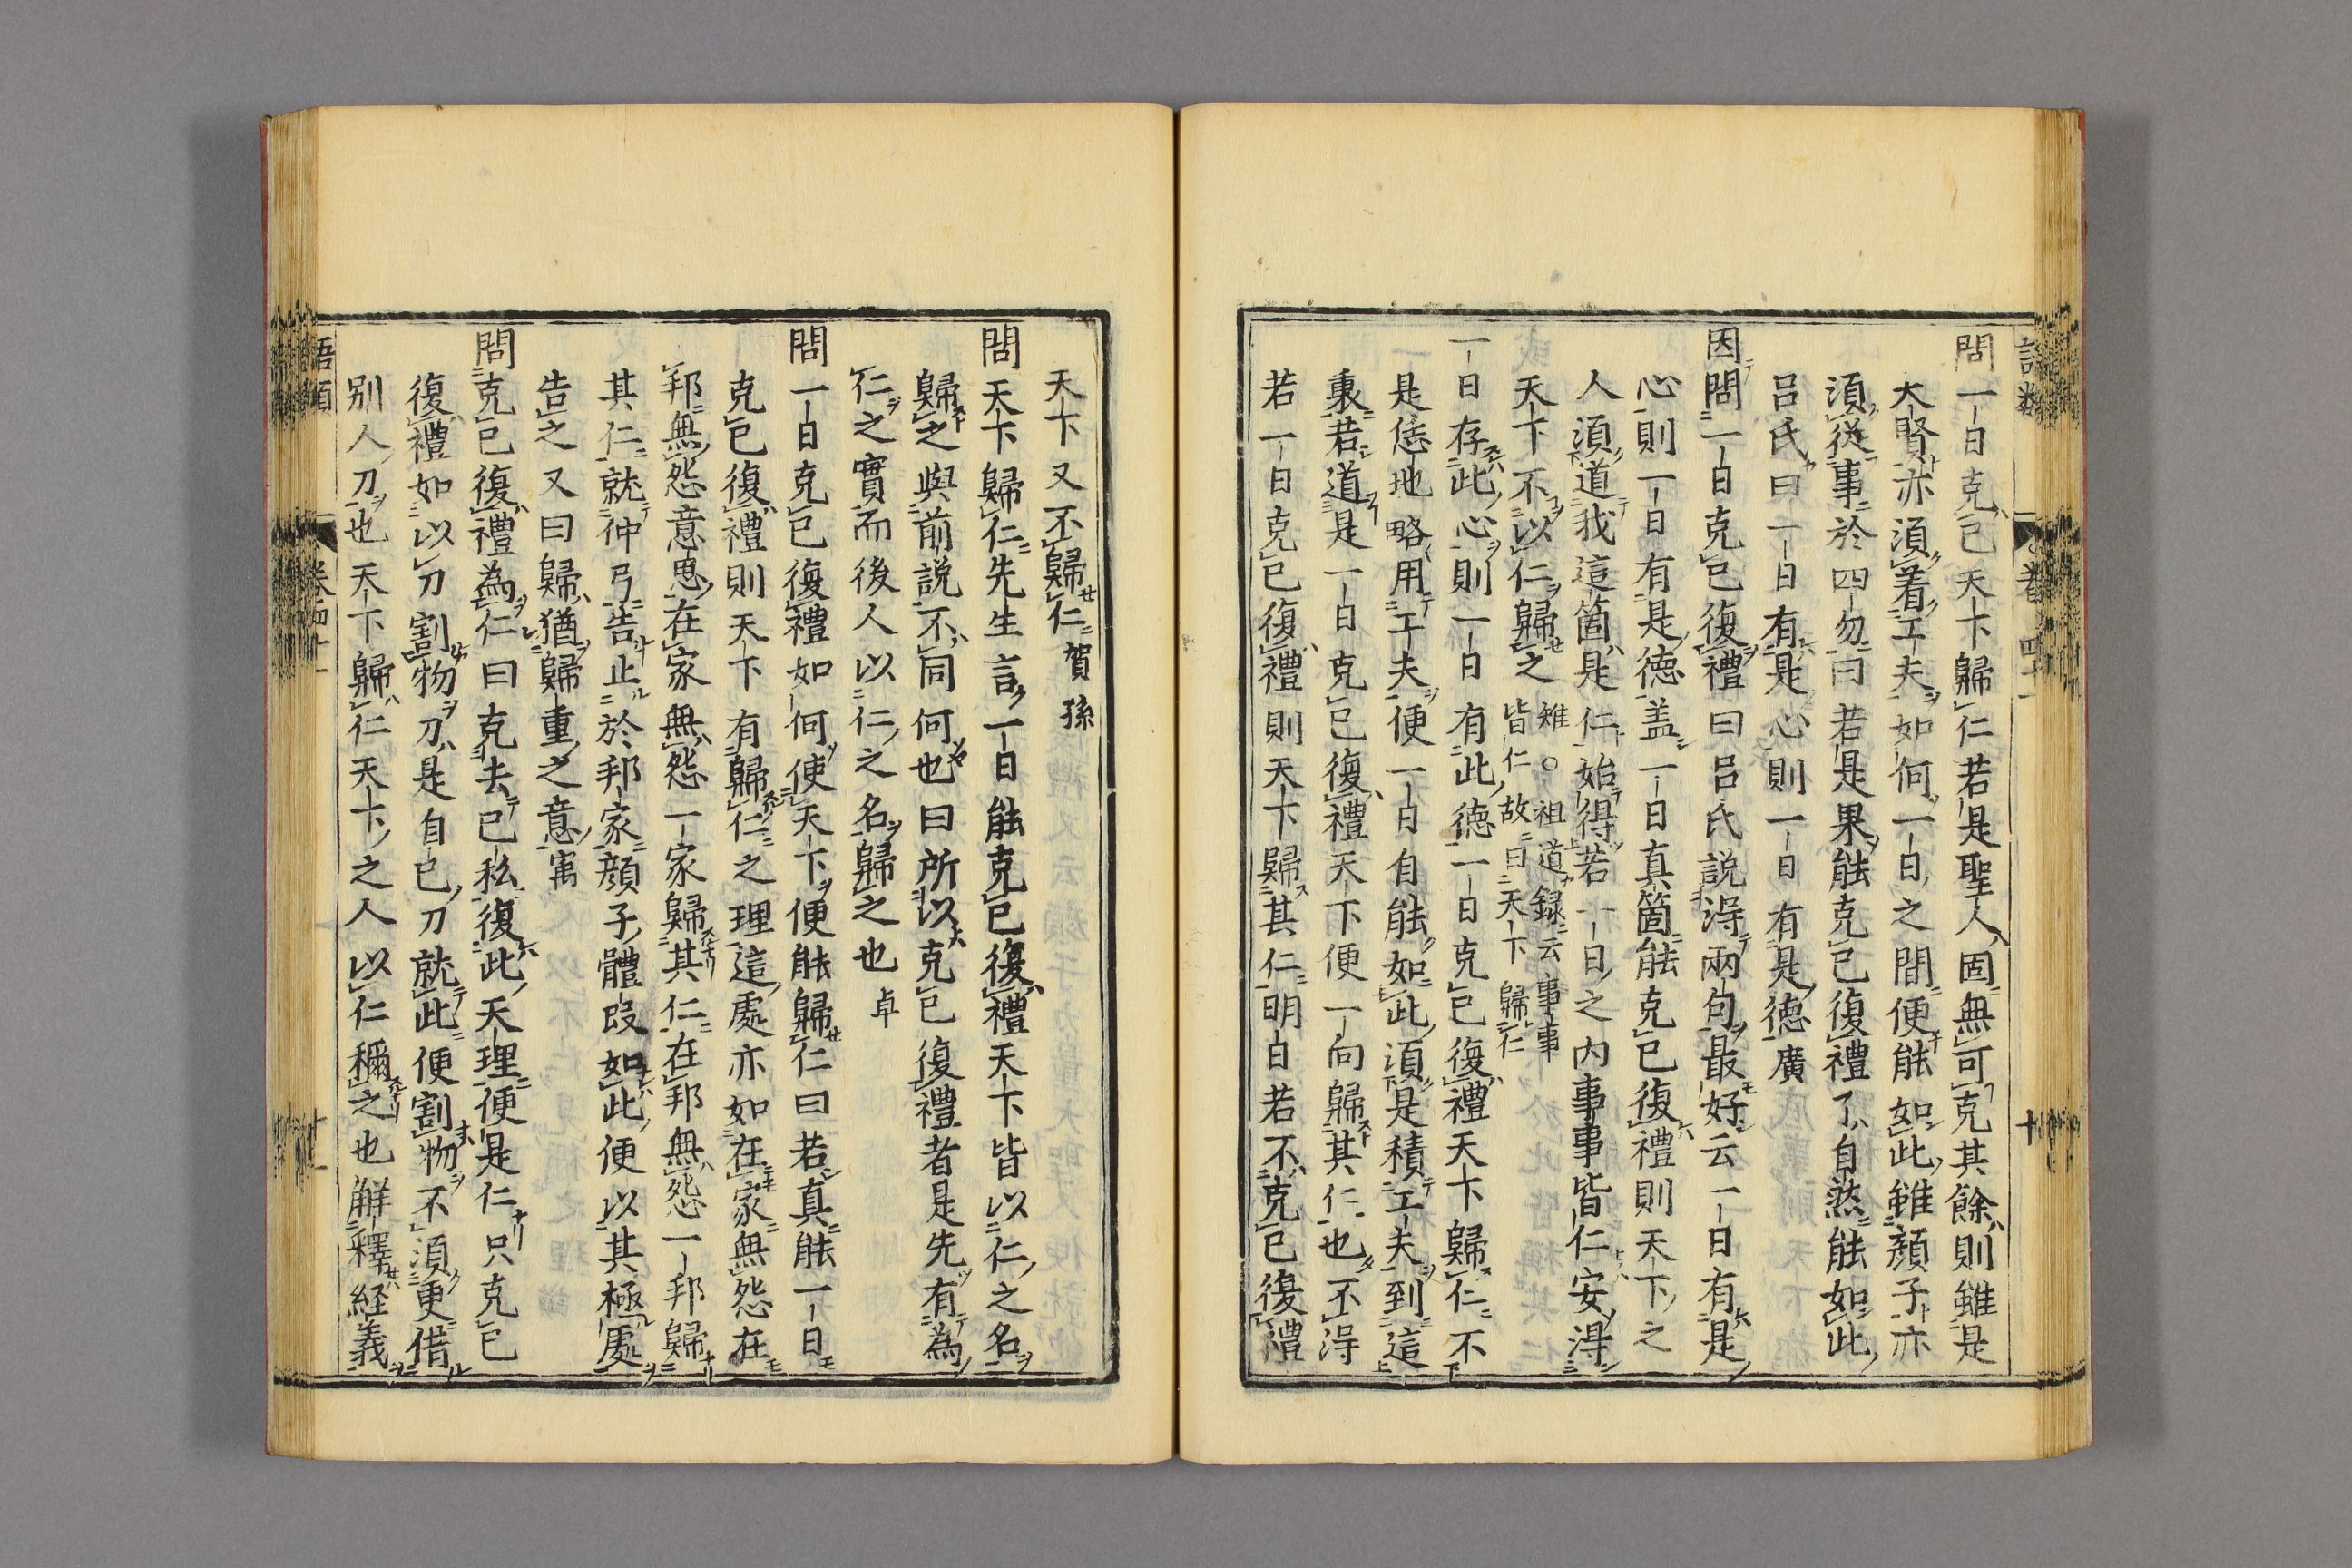 問一日克己天下歸仁若是聖人固無可克其餘則雖是
大賢亦須着工夫如何一日之間便能如此雖顏子亦
須從事於四勿曰若是果能克己復禮了自然能如此
呂氏曰一日有是心則一日有是德廣
因問一日克己復禮曰呂氏說得兩句最好云一日有是
心則一日有是德盖一日真箇能克己復禮則天下之
人須道我這箇是仁始得若一日之內事事皆仁安得
天下不以仁歸之雉○祖道録云事事皆仁故曰天下歸仁
一日存此心則一日有此德一日克己復禮天下歸仁不
是恁地略用工夫便一日自能如此須是積工夫到這
裏若道是一日克己復禮天下便一向歸其仁也不得
若一日克己復禮則天下歸其仁明日若不克己復禮
天下又不歸仁賀孫
問天下歸仁先生言一日能克己復禮天下皆以仁之名
歸之與前說不同何也曰所以克己復禮者是先有為
仁之實而後人以仁之名歸之也卓
問一日克己復禮如何使天下便能歸仁曰若真能一日
克己復禮則天下有歸仁之理這處亦如在家無怨在
邦無怨意思在家無怨一家歸其仁在邦無怨一邦歸
其仁就仲弓告止於邦家顏子體段如此便以其極處
告之又曰歸猶歸重之意㝢
問克己復禮為仁曰克去己私復此天理便是仁只克己
復禮如以刀割物刀是自己刀就此便割物不須更借
別人刀也天下歸仁天下之人以仁稱之也解釋経義
語類 卷四十一 十
語類 卷四十一 十一